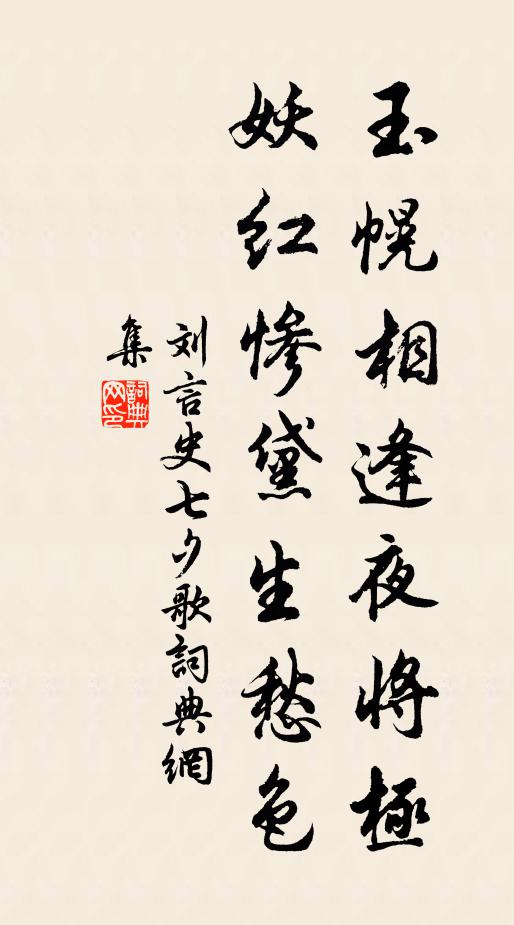 玉幌相逢夜将極
妖紅慘黛生愁色
刘言史七夕歌詞典網
集
詞典網印